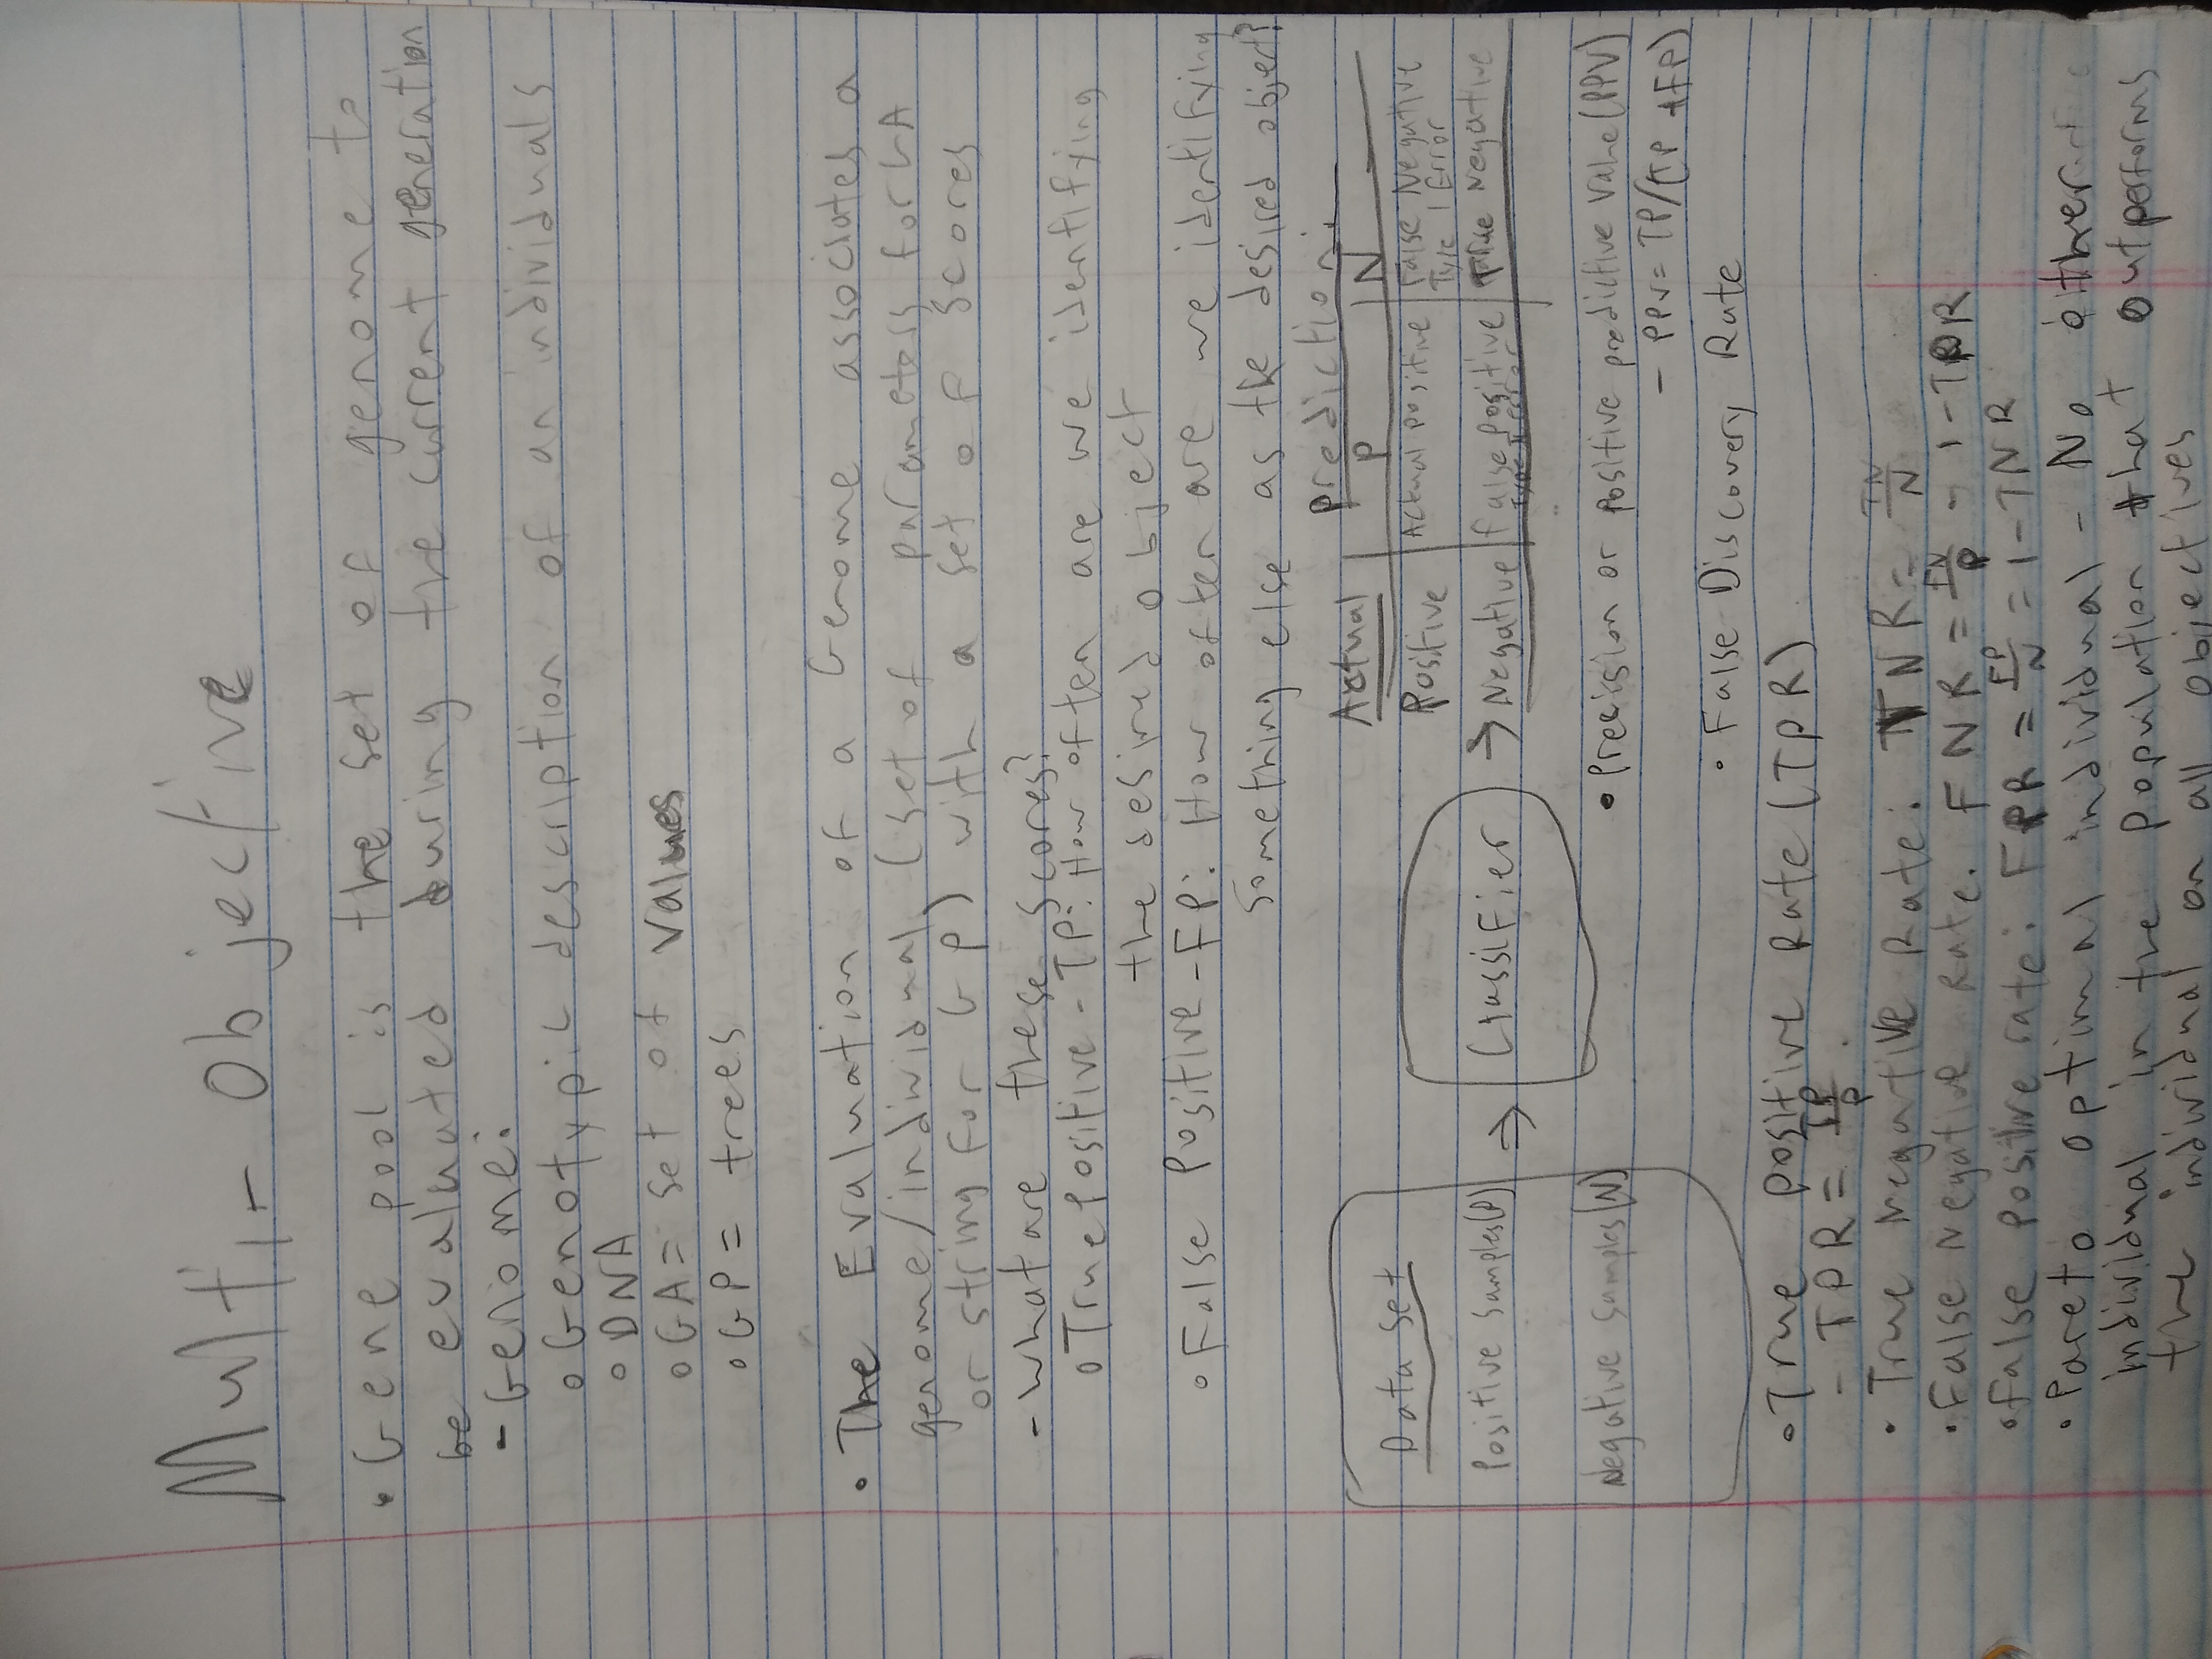 Multi-Objective
• Gene pool is the set of genome to
be evaluated during the current generation
- Genome:
o Genotypic description of an individuals
o DNA
o GA = set of values
o GP = trees
• The Evaluation of a Genome associates a
genome/individual (set of parameters for GA
or string for GP) with a set of scores
- What are these scores?
o True Positive - TP: How often are we identifying
the desired object
o False Positive - FP: How often are we identifying
something else as the desired object?
Data set
Positive samples (P)
Negative samples (N)
→ Classifier →
Actual prediction
P N
Positive Actual positive False Negative
Type 1 Error
Negative False positive True Negative
• Precision or positive predictive value (PPV)
- PPV = TP/(TP + FP)
• False Discovery Rate
• True Positive Rate (TPR)
- TPR = TP/P
• True Negative Rate: TNR = TN/N
• False Negative Rate: FNR = FN/P = 1-TPR
• False Positive rate: FPR = FP/N = 1-TNR
• Pareto optimal individual - No other
individual in the population that outperforms
the individual on all objectives